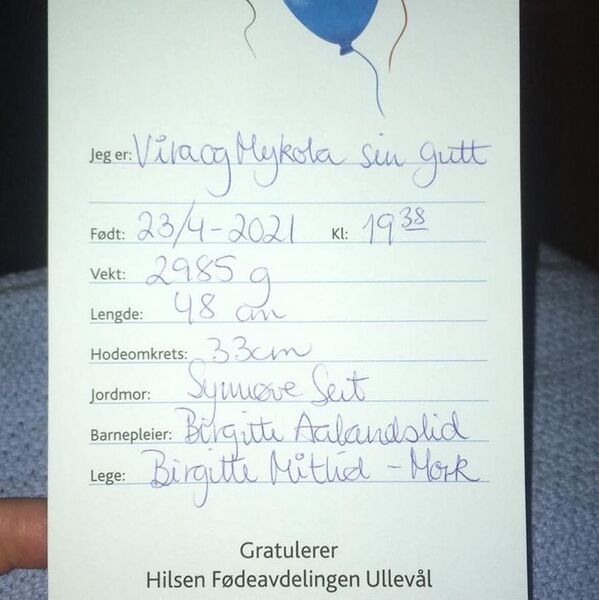 Jeg er: Vira og Mykola sin gutt
Født: 23/4-2021 Kl: 19 38
Vekt: 2985 g
Lengde: 48 cm
Hodeomkrets: 33cm
Jordmor: Synnøve Seit
Barnepleier: Birgitte Aalandslid
Lege: Birgitte Mitlid - Mork
Gratulerer
Hilsen Fødeavdelingen Ullevål